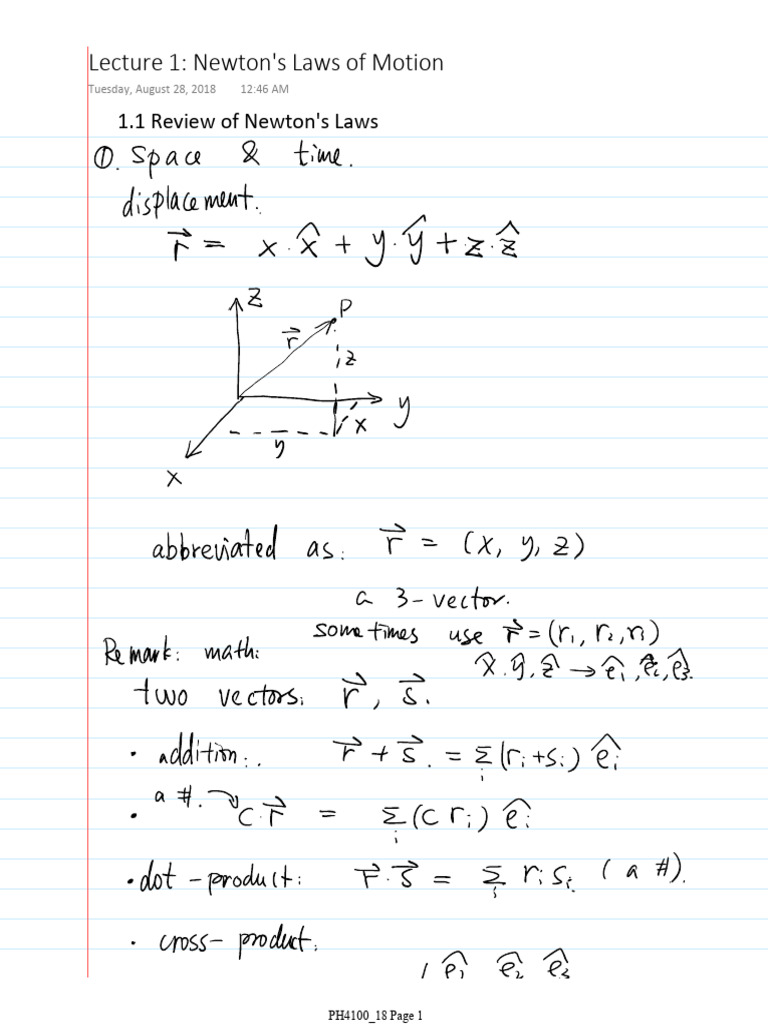 Lecture 1: Newton's Laws of Motion
Tuesday, August 28, 2018 12:46 AM
1.1 Review of Newton's Laws
①. Space & time.
displacement.
r⃗ = x·x̂ + y·ŷ + z·ẑ
z
P
r⃗
z
y
x
y
x
abbreviated as: r⃗ = (x, y, z)
a 3-vector.
Remark: math: sometimes use r⃗ = (r₁, r₂, r₃)
x̂, ŷ, ẑ → ê₁, ê₂, ê₃.
two vectors: r⃗, s⃗.
· addition: r⃗ + s⃗. = Σᵢ(rᵢ+sᵢ) êᵢ
· a #. C·r⃗ = Σᵢ(C rᵢ) êᵢ
· dot-product: r⃗·s⃗ = Σᵢ rᵢsᵢ (a #).
· cross-product:
| ê₁ ê₂ ê₃
PH4100_18 Page 1